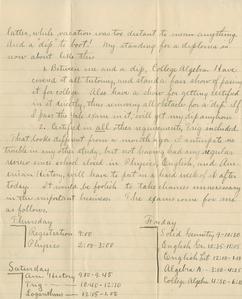 latter, while vacation was too distant to mean anything.
And a dip. to boot! My standing for a diploma is
now about like this
1. Between me and a dip., College Algebra. Have
covered it all tutoring, and stand a fair show of passing
it for college. Also have a show for getting certified
in it directly, thus removing all obstacle for a dip. If
I pass the Yale exam in it, will get my dip anyhow.
2. Certified in all other requirements, trig included.
That looks different from a month ago. I anticipate no
trouble in any other study, but not having had any regular
reviews since school closed in Physics, English, and Am-
erican History, will have to put in a hard week of it after
today. It would be foolish to take chances unnecessary
in this important business. The exams come for me
as follows.
Thursday
Registration 9:00
Physics 2:00-3:00
Saturday
Am. History 9:00-9:45
Trig 10:40-12:10
Logarithms 12:05-1:05
Friday
Solid Geometry 9-10:30
English Gr. 10:35-12:05
English Lit 12:10-1:00
Algebra A - 2:00-4:25
College Algebra 4:30-6:20